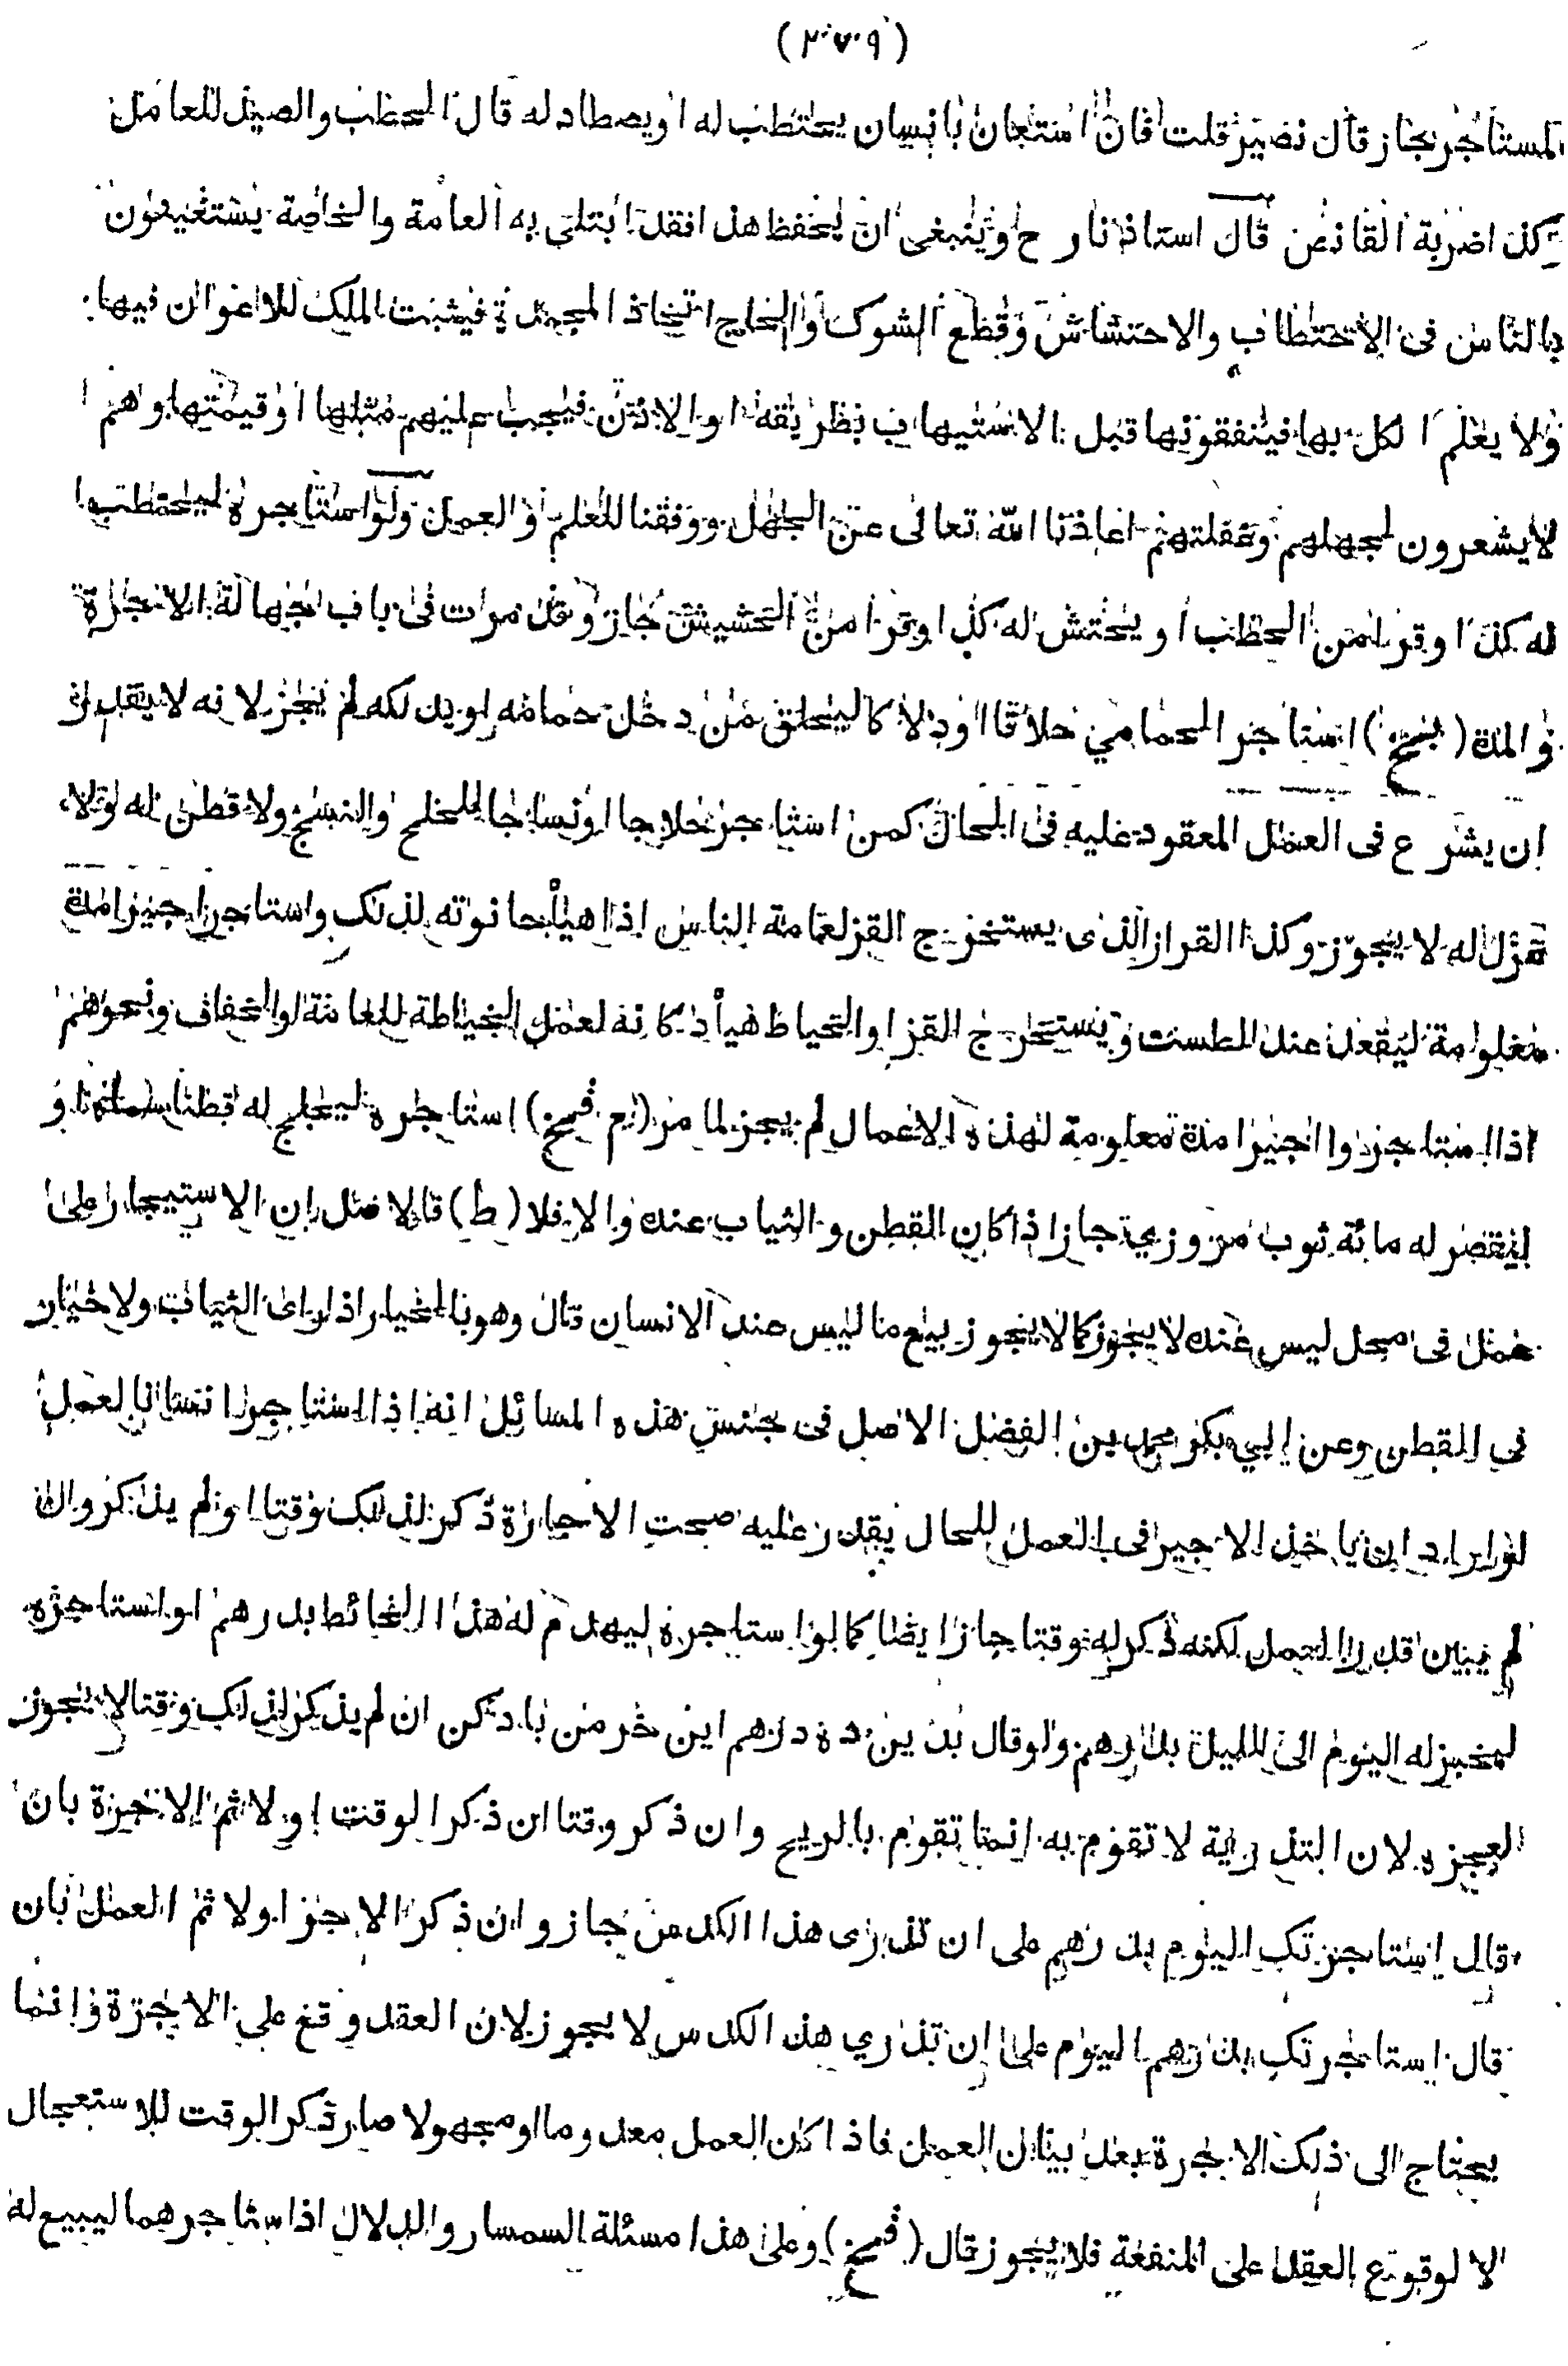 (٢٧٩)
المستأجر جاز قال نصير قلت فان استعان بانسان يحتطب له او يصطاد له قال الحطب والصيد للعامل
وكذا ضربة القانص قال استاذنا رح وينبغي ان يحفظ هذا فقد ابتلى به العامة والخاصة يستعينون
بالناس فى الاحتطاب والاحتشاش وقطع الشوك والحاج اتخاذ المجمدة فيثبت الملك للاعوان فيها
ولا يعلم الكل بها فينفقونها قبل الاستيهاب بطريقه او الاذن فيجب عليهم مثلها او قيمتها وهم ا
لا يشعرون لجهلهم وغفلتهم اعاذنا الله تعالى عن الجهل ووفقنا للعلم والعمل ولو استأجره ليحتطب
له كذا وقرا من الحطب او يحتش له كذا وقرا من الحشيش جاز وقد مرت فى باب الجهالة الاجارة
والمدة (بخ) استاجر الحمامي حلاقا او دلاكا ليحلق من دخل حمامه او يدلكه لم يجز لانه لا يقدر
ان يشرع فى العمل المعقود عليه فى الحال كمن استاجر حلاجا او نساجا للحلج والنسج ولا قطن له ولا
غزل له لا يجوز وكذا القزاز الذى يستخرج القز لعامة الناس اذا هيأ حانوته لذلك واستاجر اجيرا مدة
معلومة ليقعد عند الطست ويستخرج القز او الخياط هيأ دكانه لعمل الخياطة للعامة والخفاف ونحوهم
اذا استاجروا اجيرا مدة معلومة لهذه الاعمال لم يجز لما مر (بم قمخ) استاجره ليحلج له قطنا او
ليقصر له مائة ثوب مروزي جاز اذا كان القطن والثياب عنده والا فلا (ط) قال الاصل ان الاستيجار على
عمل فى محل ليس عنده لا يجوز كما لا يجوز بيع ما ليس عند الانسان قال وهو بالخيار اذا راى الثياب ولا خيار
في القطن وعن ابي بكر محمد بن الفضل الاصل فى جنس هذه المسائل انه اذا استاجر انسانا لعمل
لو اراد ان ياخذ الاجير فى العمل للحال يقدر عليه صحت الاجارة ذكر لذلك وقتا او لم يذكر وان
لم يبين قدر العمل لكنه ذكر له وقتا جاز ايضا كما لو استاجره ليهدم له هذا الحائط بدرهم او استاجره
ليخبز له اليوم الى الليل بدرهم ولو قال بدين ده درهم اين خرمن باد كن ان لم يذكر لذلك وقتا لا يجوز
لعجزه لان التذرية لا تقوم به انما تقوم بالريح وان ذكر وقتا ان ذكر الوقت اولا ثم الاجرة بان
قال استاجرتك اليوم بدرهم على ان تذرى هذا الكدس جاز وان ذكر الاجر اولا ثم العمل بان
قال استاجرتك بدرهم اليوم على ان تذري هذا الكدس لا يجوز لان العقد وقع على الاجرة وانما
يحتاج الى ذلك الاجرة بعد بيان العمل فاذا كان العمل معدوما او مجهولا صار ذكر الوقت للاستعجال
لا لوقوع العقد على المنفعة فلا يجوز قال (قمخ) وعلى هذا مسئلة السمسار والدلال اذا ستاجرهما ليبيع له